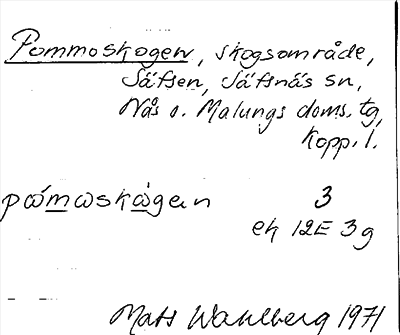 Pommoskogen, skogsområde,
Säfsen, Säfsnäs sn,
Nås o. Malungs doms. tg,
Kopp. l.
påmωskågan 3
ek 12E 3g
Mats Wahlberg 1971